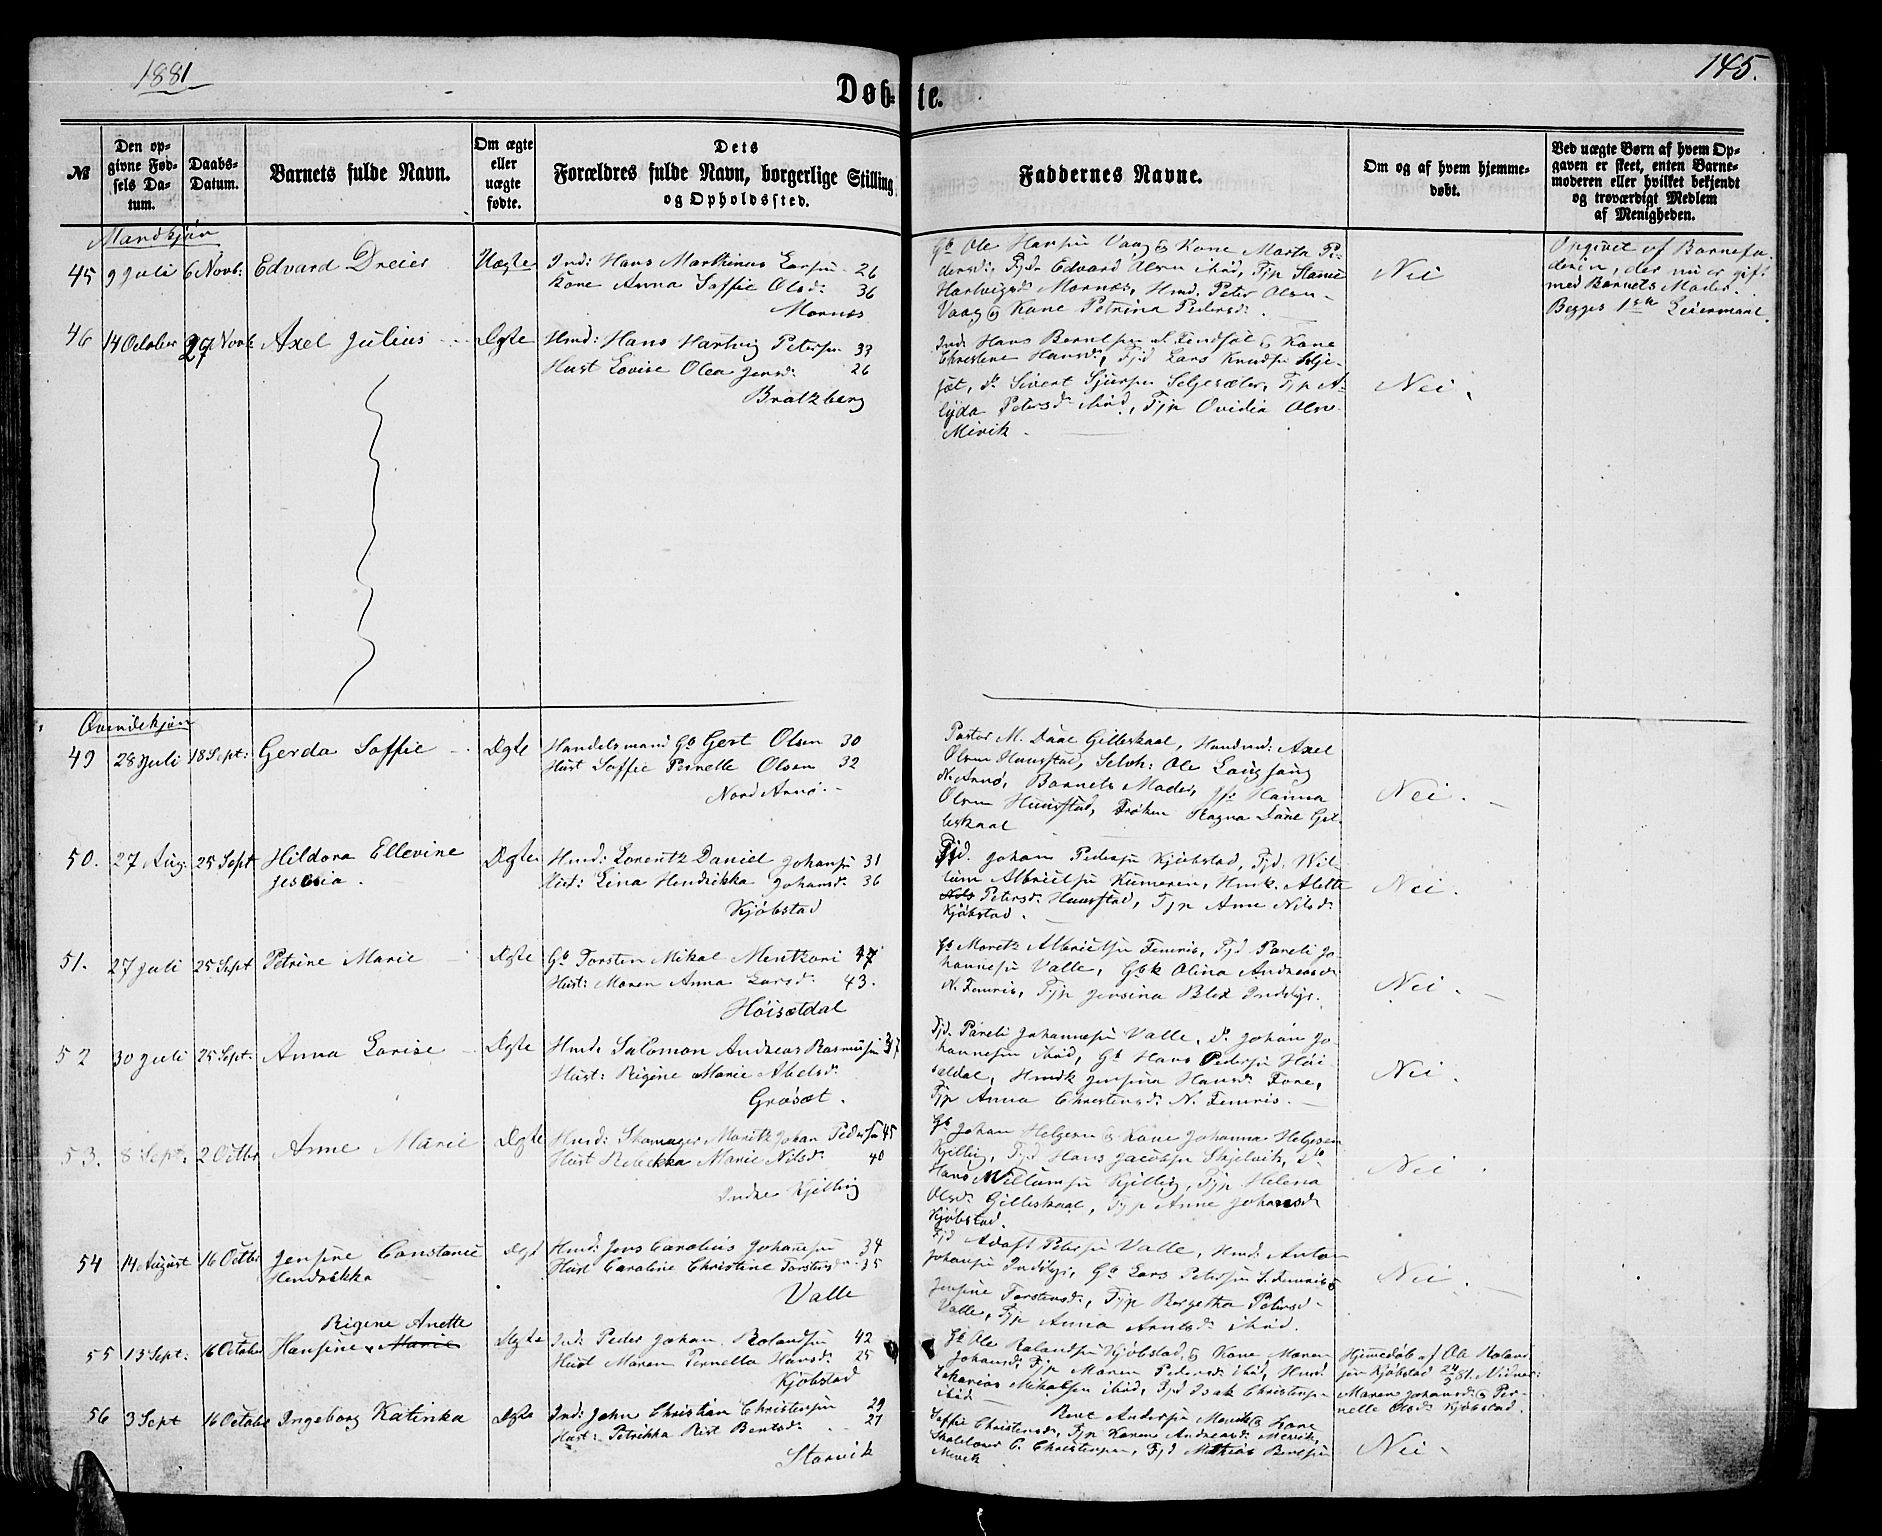 1881
145.
Døbte.
№
Den opgivne Fødsels Datum.
Daabs-Datum.
Barnets fulde Navn.
Om ægte eller uægte fødte.
Dets Forældres fulde Navn, borgerlige Stilling og Opholdssted.
Faddernes Navne.
Om og af hvem hjemmedøbt.
Ved uægte Børn af hvem Opgaven er skeet, enten Barnemoderen eller hvilket bekjendt og troværdigt Medlem af Menigheden.
Mandkjøn
45 9 Juli 6 Novb: Edvard Dreier Uægte
Ind: Hans Marthinus Larsen 26
Kone Anna Soffie Olsd: 36
Mornæs
Gb Ole Hansen Vaag & Kone Marta Pe-
dersd:, Tjd Edvard Olsen ibid, Tjp Hanne
Hartvigsd Mornæs, Hmd. Peter Olsen
Vaag & Kone Petrina Pedersd.
Nei
Opgivet af Barnefa-
deren, der nu er gift
med Barnets Moder.
Begges 1ste Leiermaal.
46 14 October 27 Novb Axel Julius Ægte
Hmd: Hans Hartvig Petersen 33
Hust Lovise Olea Jensd: 26
Bratzberg
Ind Hans Berntsen S. Fendsæt & Kone
Christine Hansd:, Tjd Lars Knudsen Selje-
sæt, do Sivert Sjursen Seljesæter, Tjp A-
lyda Petersd ibid, Tjp Ovidia Olsd
Mevik.
Nei.
Qvindekjøn
49 28 Juli 18 Sept: Gerda Soffie Ægte
Handelsmand Gb Gert Olsen 30
Hust Soffie Pernelle Olsen 32
Nord Arnø.
Pastor M. Daae Gilleskaal, Handsmd: Axel
Olsen Huusstad, Selvh: Ole Langsang
N. Arnø, Barnets Moder, Hanna
Olsen Huusstad, Frøken Ragna Daae Gil-
leskaal
Nei.
50. 27 Aug. 25 Sept Hildora Ellevine Ægte
Jessia.
Hmd: Lorentz Daniel Johansen 31
Hust: Lina Hendrikka Johansd: 36
Kjøbstad
Tjd. Johan Pedersen Kjøbstad, Tjd. Wil-
lum Albrictsen Kumoren, Hmk. Alette
Petersd: Huusstad, Tjp Ane Nilsd:
Kjøbstad.
Nei.
51. 27 Juli 25 Sept Petrine Marie Ægte
Gb Torsten Mikal Mentzoni 47
Hust: Maren Anna Larsd: 43.
Høisætdal
Gb Moretz Albrictsen Femris, Tjd Pareli Jo-
hannesen Valle, Gbk Olina Andreasd
N. Femris, Tjp Jensina Blix Indbygd.
Nei.
52 30 Juli 25 Sept: Anna Lovise Ægte
Hmd. Salomon Andreas Rasmussen 37
Hust: Regine Marie Abelsd:
Grøsæt.
Tjd. Pareli Johannesen Valle, do Johan Jo-
hannesen ibid, Gb Hans Pedersen Høi-
sætdal, Hmdk Jensina Hansd: Fore,
Tjp Anna Christensd: N. Femris.
Nei.
53. 8 Sept. 2 Octbr Anne Marie Ægte
Hmd: Skomager Moritz Johan Peders 45
Hust Rebekka Marie Nilsd: 40
Indre Kjelling
Gb Johan Helgesen & Kone Johanna Helgesen
Kjelling, Tjd Hans Jacobsen Skjelvik, do
Hans Willumsen Kjelling, Tjp Helena
Olsd: Gilleskaal, Tjp Anne Johansd
Kjøbstad.
Nei
54 14 August 16 Octbr Jensine Constance Ægte
Hendrikka
Hmd: Jens Carolius Johansen 34
Hust Caroline Christine Torstensd. 35
Valle
Tjd Adolf Petersen Valle, Hmd: Anton
Johansen Indbyg, Gb Lars Petersen S. Femris &
Jensine Torstensd:, Tjp Bergetha Petersd
Valle, Tjp Anna Arntsd: ibid.
Nei.
Regine Anette
55 13 Sept: 16 October Hansine Marie Ægte
Ind: Peder Johan Rolandsen 42
Hust Maren Pernella Hansd: 25
Kjøbstad
Gb Ole Rolandsen Kjøbstad & Kone Maren
Johansd, Tjp Maren Pedersd: ibid, Hmd
Zakarias Mikalsen ibid, Tjd Isak Christensen
ibid.
Hjemmedøb af Ole Roland-
sen Kjøbstad 24/9 81. Vidner:
Maren Johansd: & Per-
nelle Olsd: Kjøbstad.
56 3 Sept 16 October Ingeborg Katinka Ægte
Ind: John Christian Christensen 29
Hust: Petrikka Rist Bentsd: 21
Storvik
Bent Andersen Mevik & Kone
Soffie Christensd:, Tjp Karen Andreasd: Mevik,
Skolelærer C. Christensen, Tjd Mathias Bentsen
Mevik
Nei.